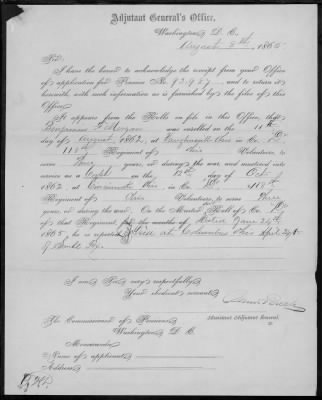 Adjutant General's Office,
Washington, D. C.
August 8th, 1865
Sir:
I have the honor to acknowledge the receipt from your Office
of application for Pension No. and to return it
herewith, with such information as is furnished by the files of this
Office.
It appears from the Rolls on file in this Office, that
Morgan was enrolled on the 11th
day of August, 1862, at Ohio in Co.
118th Regiment of Ohio Volunteers, to
serve Three years, or during the war, and mustered into
service as a Capt. on the 12th day of Oct.
1862, at Cincinnati Ohio, in Co. 118th
Regiment of Ohio Volunteers, to serve Three
years, or during the war. On the Muster Roll of Co.
of that Regiment, for the months of dated June 24th
1865, he is reported Died at Columbus Ohio April 24th
of
I am, Sir, very respectfully,
Your obedient servant,
Assistant Adjutant General.
The Commissioner of Pensions,
Washington, D. C.
Memoranda:
Name of applicant
Address